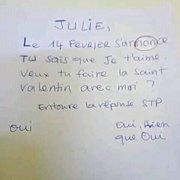 JULIE,
Le 14 Février s'annonce
TU sais que Je t'aime.
veux tu faire la saint
valentin avec moi ?
Entoure la réponse STP
oui
oui, Rien
que oui